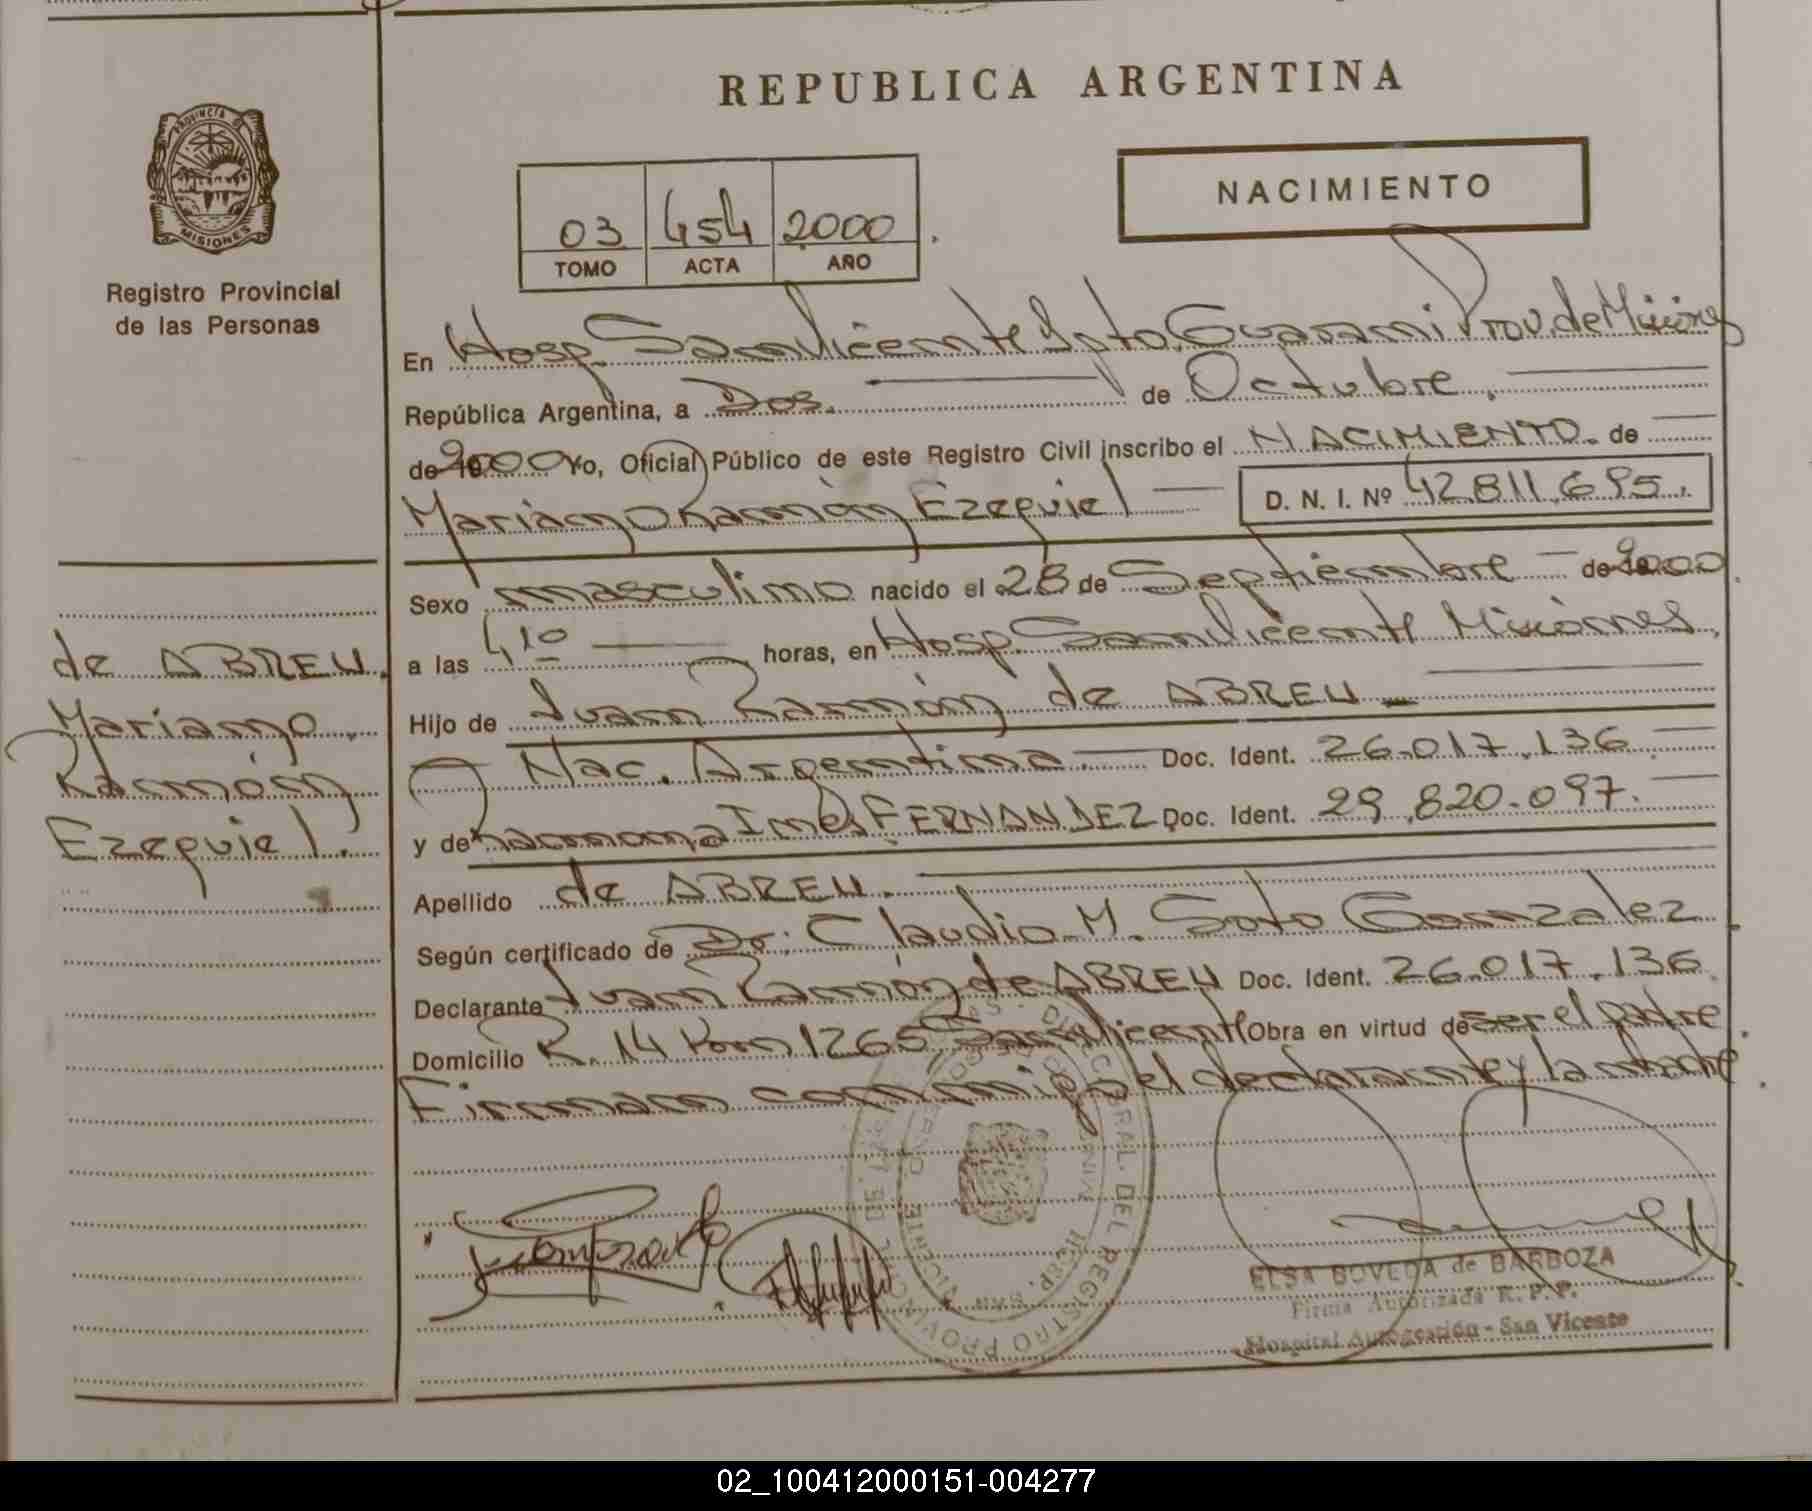 REPUBLICA ARGENTINA
PROVINCIA DE
MISIONES
Registro Provincial
de las Personas
NACIMIENTO
03 454 2000
TOMO ACTA AÑO
En Hosp. San Vicente Dpto. Guaraní Prov. de Misiones
República Argentina, a Dos. de Octubre.
de 2000 Yo, Oficial Público de este Registro Civil inscribo el NACIMIENTO. de
Mariano Ramón Ezequiel D. N. I. Nº 42.811.695.
Sexo masculino nacido el 28 de Septiembre de 2000.
a las 4,10 horas, en Hosp. San Vicente Misiones.
Hijo de Juan Ramón de ABREU
Nac. Argentina. Doc. Ident. 26.017.136
y de Ramona Ines FERNANDEZ Doc. Ident. 29.820.097.
Apellido de ABREU.
Según certificado de Dr. Claudio M. Soto Gonzalez.
Declarante Juan Ramón de ABREU Doc. Ident. 26.017.136
Domicilio R. 14 Km 1265 San Vicente Obra en virtud de ser el padre.
Firman conmigo el declarante y la madre.
de ABREU.
Mariano
Ramón
Ezequiel.
ELSA BOVEDA de BARBOZA
Firma Autorizada R. P. P.
Hospital Autogestión - San Vicente
02_100412000151-004277